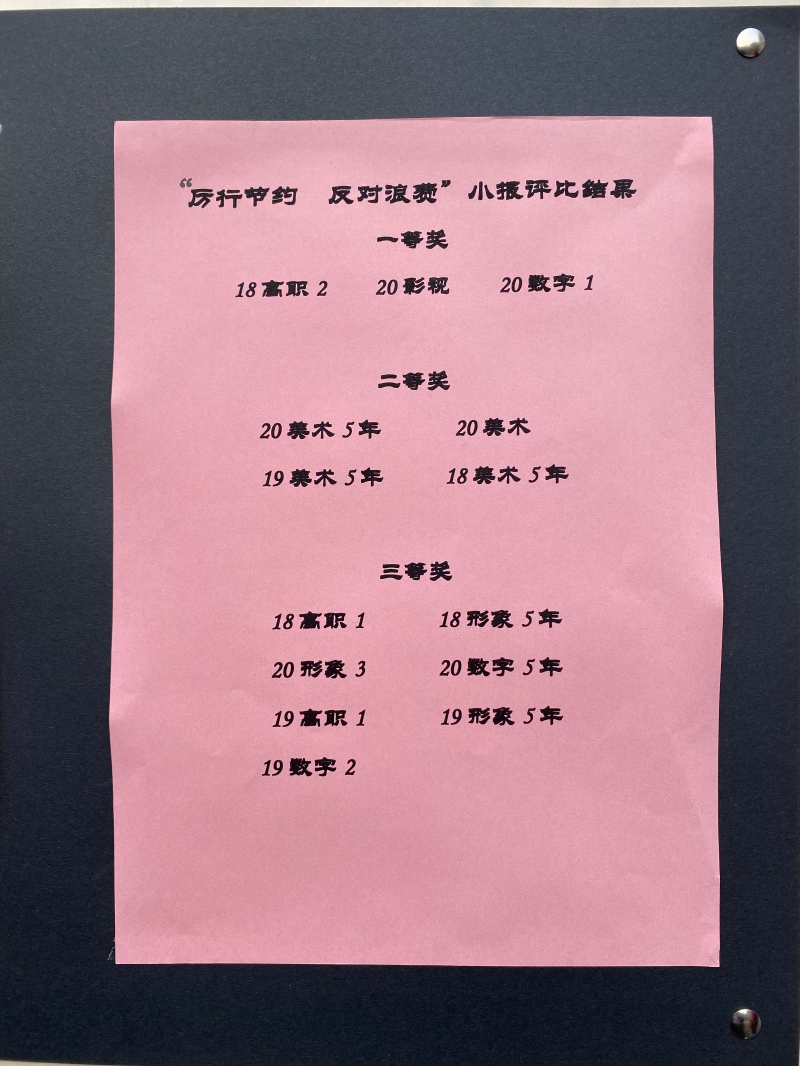 “厉行节约 反对浪费”小报评比结果
一等奖
18高职2 20影视 20数字1
二等奖
20美术5年 20美术
19美术5年 18美术5年
三等奖
18高职1 18形象5年
20形象3 20数字5年
19高职1 19形象5年
19数字2